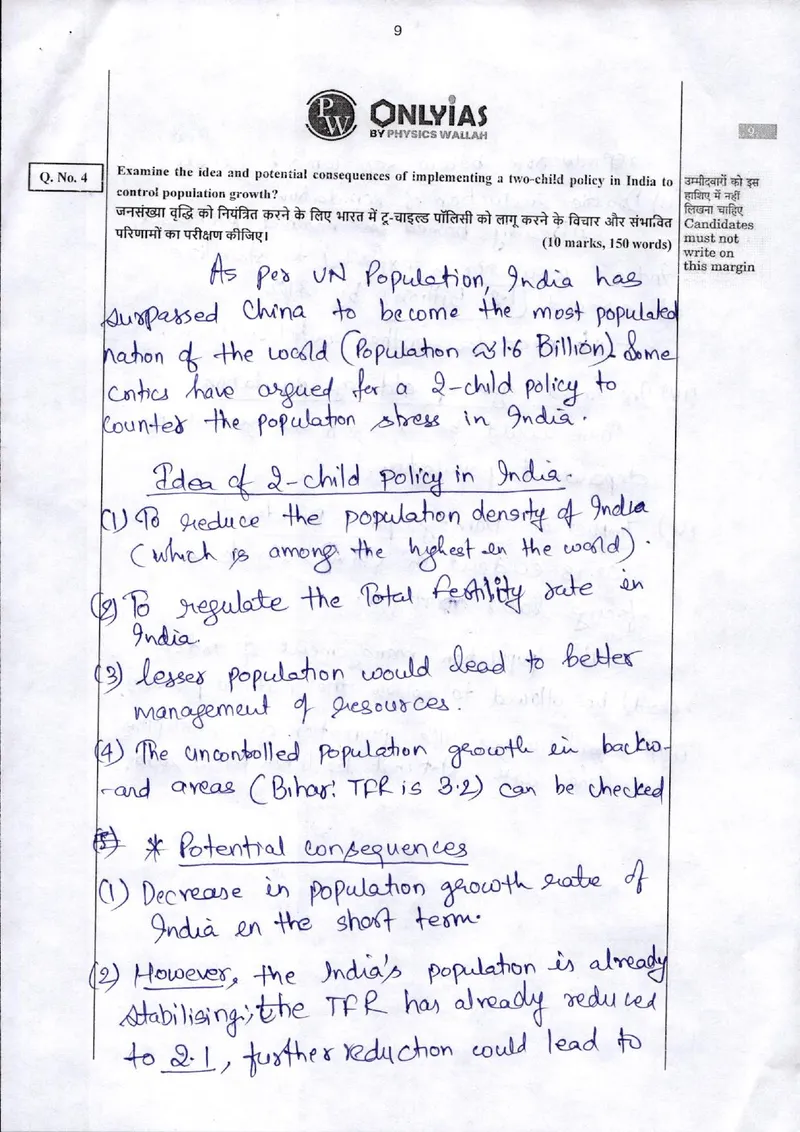 9
PW
ONLYIAS
BY PHYSICS WALLAH
9
Q. No. 4
Examine the idea and potential consequences of implementing a two-child policy in India to
control population growth?
जनसंख्या वृद्धि को नियंत्रित करने के लिए भारत में टू-चाइल्ड पॉलिसी को लागू करने के विचार और संभावित
परिणामों का परीक्षण कीजिए।
(10 marks, 150 words)
उम्मीदवारों को इस
हाशिए में नहीं
लिखना चाहिए
Candidates
must not
write on
this margin
As Per UN Population, India has
surpassed China to become the most populated
nation of the world (Population ≈ 1.6 Billion). Some
critics have argued for a 2-child policy to
counter the population stress in India.
Idea of 2-child policy in India.
(1) To reduce the population density of India
(which is among the highest in the world).
(2) To regulate the Total fertility rate in
India.
(3) lesser population would lead to better
management of resources.
(4) The uncontrolled population growth in backw-
-ard areas (Bihar: TFR is 3.2) can be checked
(5) * Potential consequences
(1) Decrease in population growth rate of
India in the short term.
(2) However, the India's population is already
stabilising; the TFR has already reduced
to 2.1, further reduction could lead to